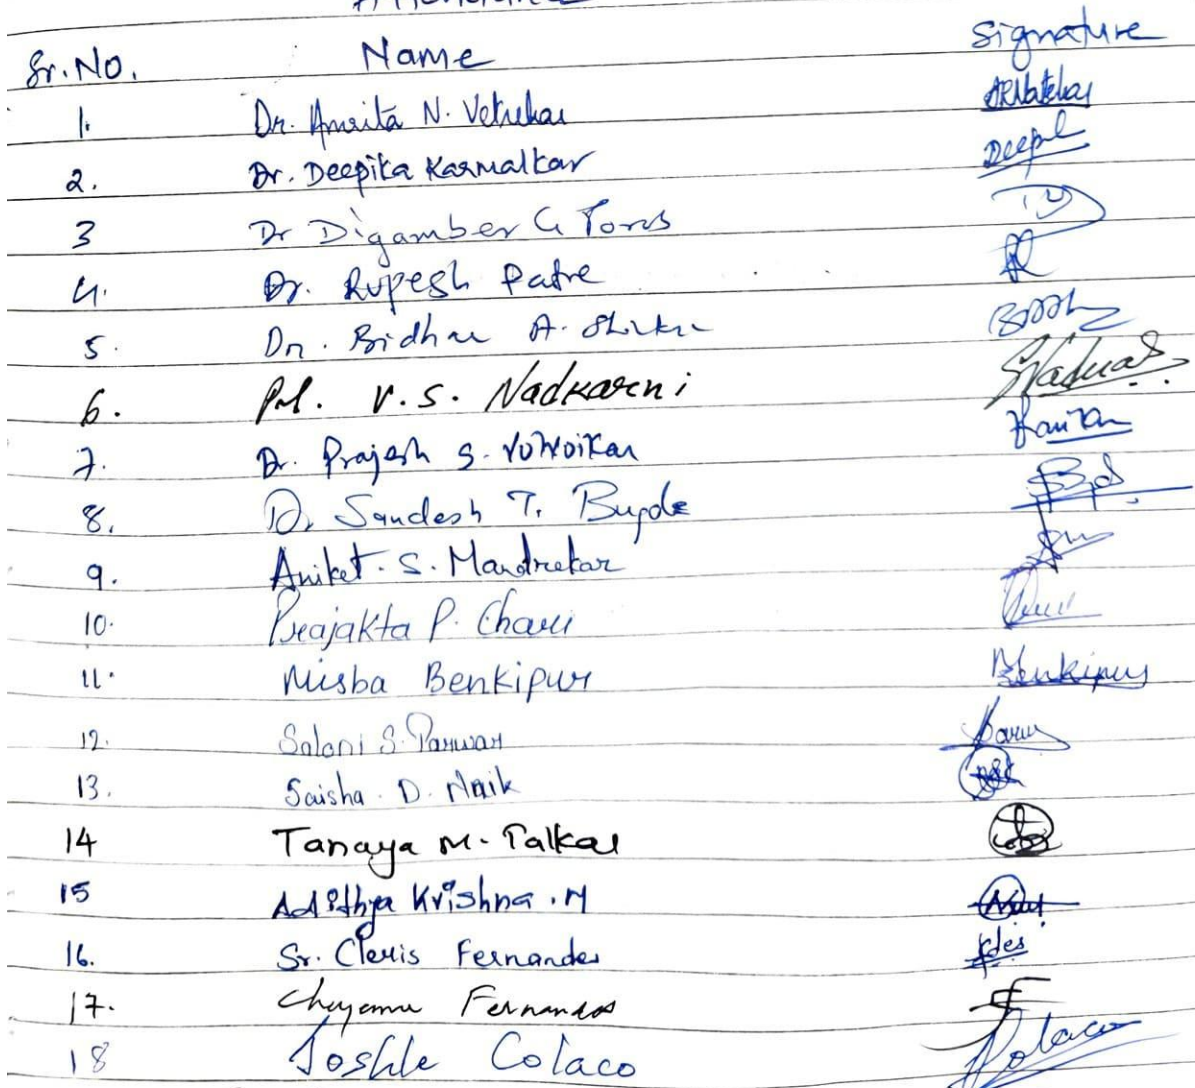 Attendance
Sr.No. Name Signature
1. Dr. Amrita N. Vetrekar
2. Dr. Deepika Karmalkar Deepa
3 Dr Digamber G Porob
4. Dr. Rupesh Patre
5. Dr. Bidhan A. 
6. Prof. V.S. Nadkarni
7. Dr. Prajesh S. Volvoikar
8. Dr Sandesh T. Bugde
9. Aniket. S. Mandrekar
10. Prajakta P. Chari
11. Misba Benkipur Benkipur
12. Saloni S. Parwar
13. Saisha. D. Naik
14 Tanaya M. Talkar
15 Adithya Krishna. M
16. Sr. Cleris Fernandes
17. Fernandes
18 Joshle Colaco Colaco